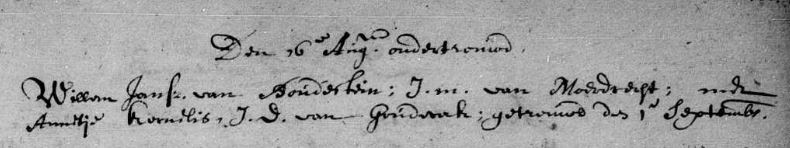 Den 16e Augti. ondertrouwd.
Willem Jansz. van Boudestein; J.m. van Moordrecht; met
Annetje Kornelis, J.D. van Gouderak; getrouwd den 1e Septembr.